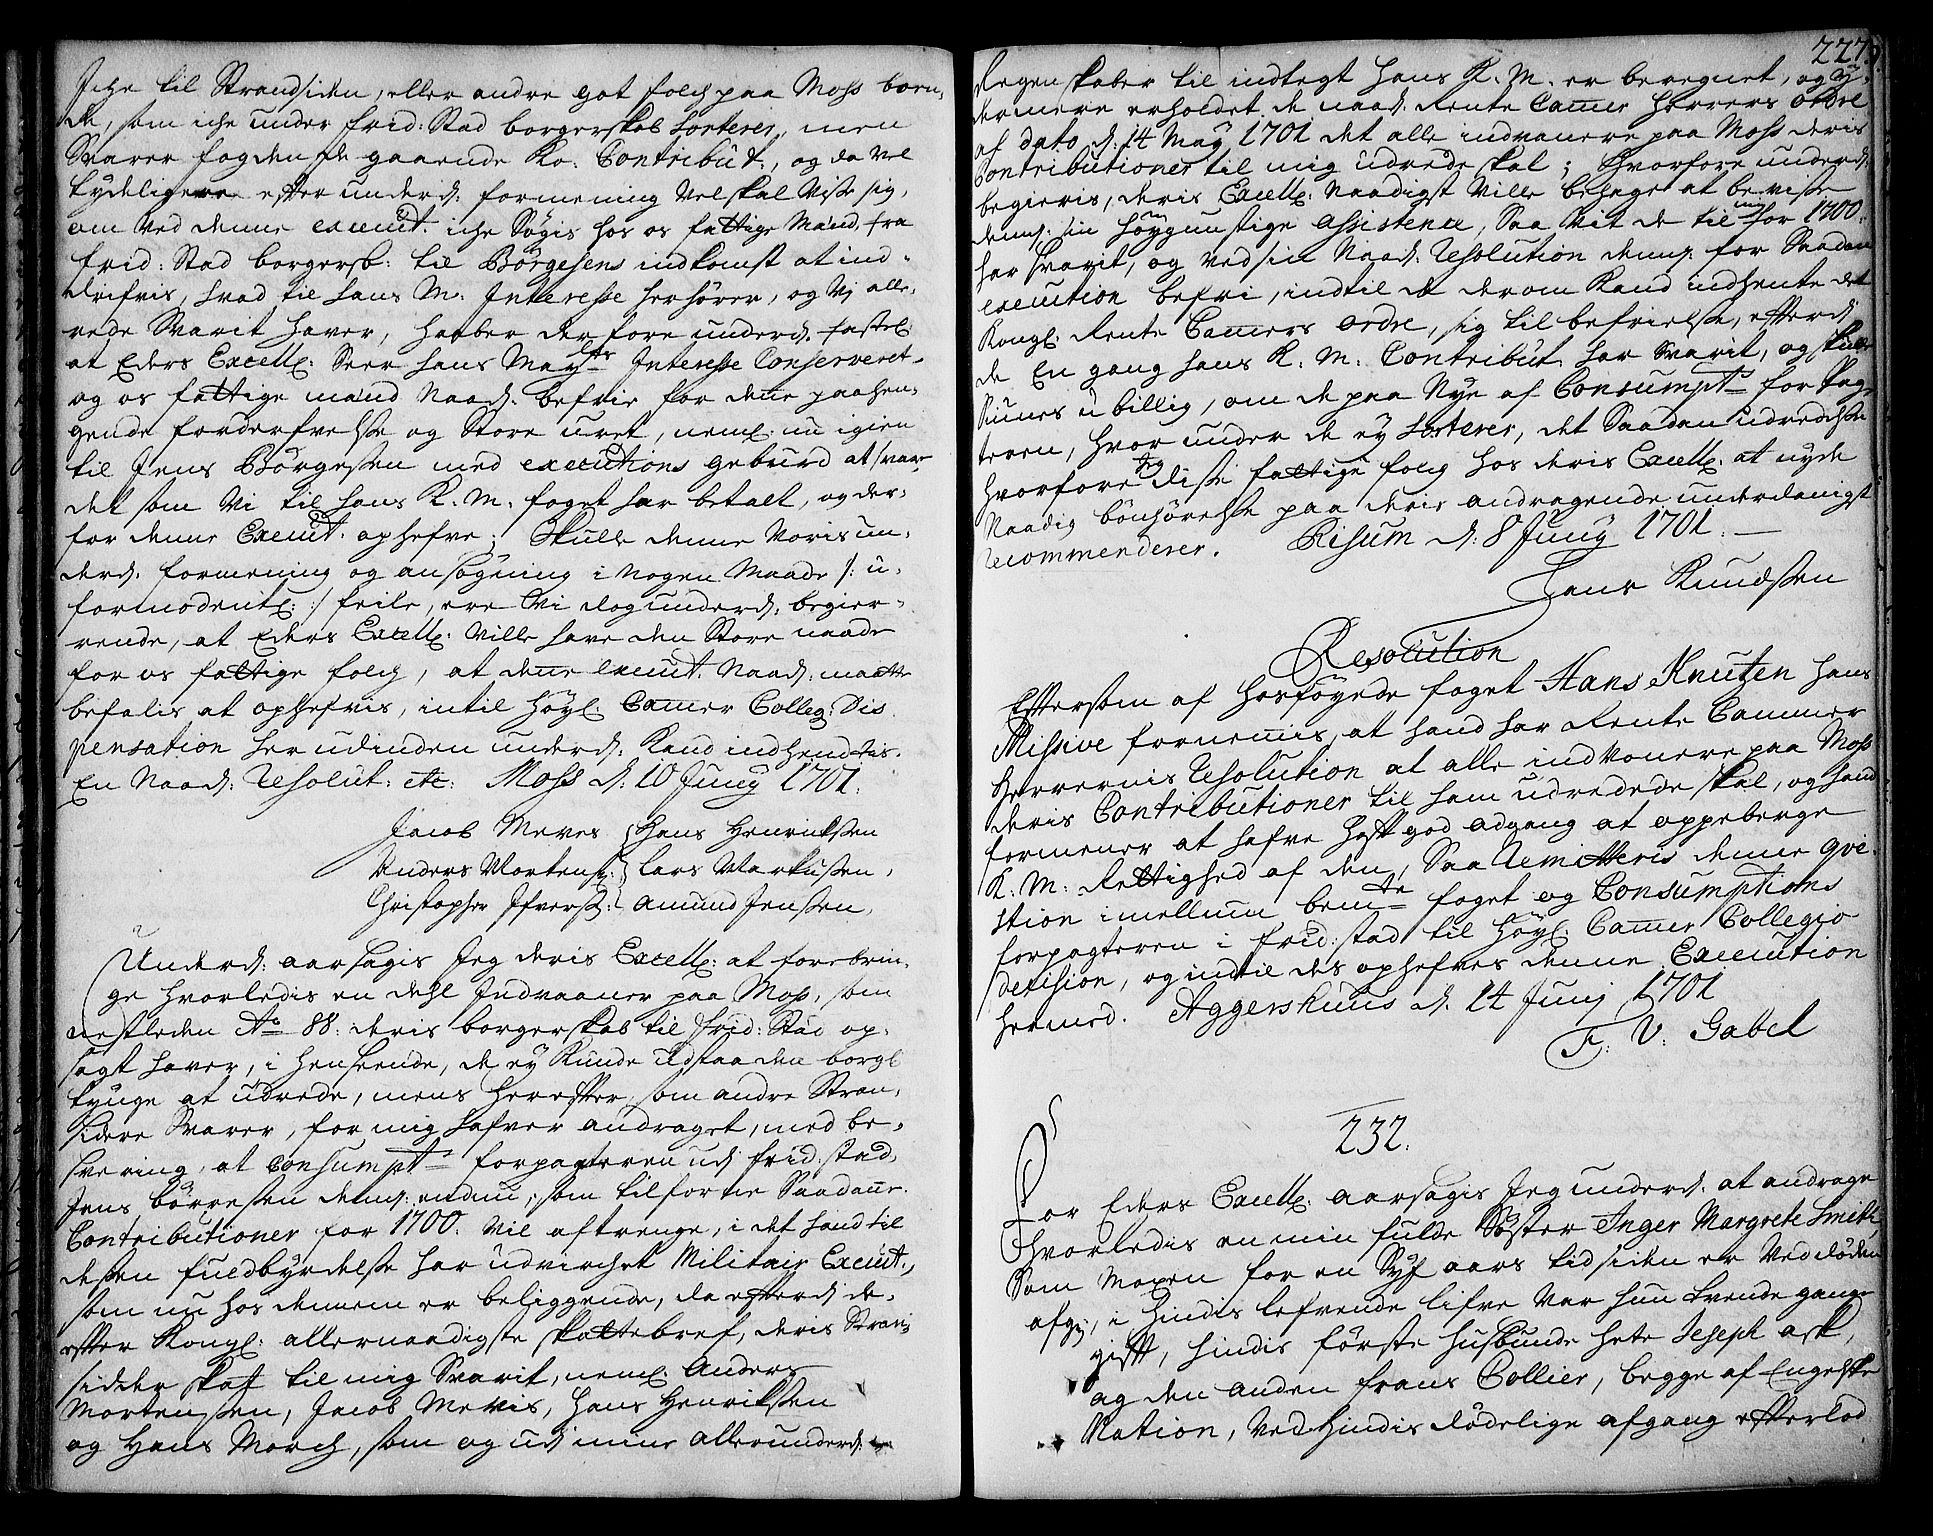 Iche til Strandsiden, eller andre got folch paa Moss boen-
de, som iche under frid: Stad borgerskab Sorterer, men
Svarer fogden sde gaaende Ko: Contribut:, og da Vel
tydeligere efter underd: formening Vel skal Visse sig,
om Ved denne execut: iche Søgis hos os fattige Mænd, fra
frid: Stad borgersk: til Børgesens indkomst at ind-
drifvis, hvad til hans M: Interesse henhører, og Vj alle-
rede Svarit haver, haaber derfore underd: fastel:
at Eders Excell: Seer hans Maysts Interesse Conserveret
og os fattige mænd Naad: befrie for denne paahen-
gende forderfvelsse og Store uret, neml: nu igien
til Jens Børgessen med executions geburd at svare
det som Vi til hans K. M. foget har betalt, og der-
for denne Execut: ophefve; Skulle denne Voris un-
derd: formening og ansøgning i Nogen Maade /: u-
formodentl: :/ feile, ere Vi dog underd: begier-
rende, at Eders Excell: Ville have den Store naade
for os fattige folch, at denne execut: Naad: maatte
befalis at ophefvis, intil Høyl: Camer Colleg: Dis-
pensation her udinden underd: Kand indhendtis.
En Naad: Resolut: etc: Moss d: 10 Junij 1701.
Jacob Meves { Hans Henrickssen
Anders Mortens: } Lars Markussen,
Christopher Ifverss: { Amund Jenssen,
Underd: aarsagis Jeg deris Excell: at forebrin-
ge hvorledis en dehl Indvaaner paa Moss, som
nestleden Ao 88: deris borgerskab til frid: Stad op-
sagt haver, i henseende, de ey Kunde udstaa den borgl:
tynge at udrede, mens herefter, som andre Stran-
sidere Svarer, for mig hafver andraget, med be-
svering, at Consumpt: forpagteren udj frid: stad,
Jens børressen dennem endnu, som tilforne Saadanne
Contributioner for 1700. Vil aftrenge, i det hand til
dessen fuldbyrdelsse har udvirchet Militair Execut:,
som nu hos dennem er beliggende, da efterdj de-
efter Kongl: allernaadigste Skattebref, deris Stran-
sidder skat til mig Svarit, neml: Anders
Mortenssen, Jacob Mevis, Hans Henrikssen
og Hans Morch, som og udj mine allerunderd:
227.
Regenskaber til indtegt hans K. M. er beregnet, og y-
dermere erholdet de naad: Rente Camer Herrers ordre
af dato d: 14 May 1701 det alle indvanere paa Moss deris
Contributioner til mig udrede skal; Hvorfore underd:
begieris, deris Excell: Naadigst Ville behaget at bevisse
dem: sin høygunstige assistence, Saa Vit de til mig for 1700.
har svarit, og Ved sin Naad: Resolution dem: for Saadan
execution befri, indtil de derom Kand indhente det
Kongl: Rente Camers ordre, sig til befrielsse, efterdj
de En gang hans K. M. Contribut: har svarit, og skulle
Siunes u billig, om de paa Nye af Consumpt: for Pag-
teren, hvor under de ey Sorterer, det Saadan udredisse
hvorfore Jeg disse fattige folch hos deris Excell: at nyde
Naadig bønhørelsse paa deris andragende underdanigst
recommenderer. Risum d: 8 Junij 1701.
Hans Knudssen
Resolution
Eftersom af hosføyede foget Hans Knutzen hans
Missive fornemis, at hand har Rente Cammer
Herrernis Resolution at alle indvonere paa Moss
deris Contributioner til ham udredede skal, og hand
formener at hafve haft god adgang at oppeberge
K: M: Rettighed af dem, Saa Remitteris denne qve-
stion imellum bemte foget og Consumptions
forpagteren i frid: stad til høyl: Camer Collegio
decision, og indtil des ophefves denne Execution
hermed. Aggershuus d: 14 Junj 1701
F: V: Gabel
232.
For Eders Excell: aarsagis Jeg underd: at andrage
hvorledis en min fulde Søster Inger Margrete Smith,
Som Moxen for en Syf aars tid siden er Ved døden
afg:, i hindis lefvende lifve Var hun tvende gange
gift, hindis første husbunde hete Jeseph Ask,
og den anden frans Collier, begge af Engelske
Nation, Ved hindis dødelige afgang efterlod